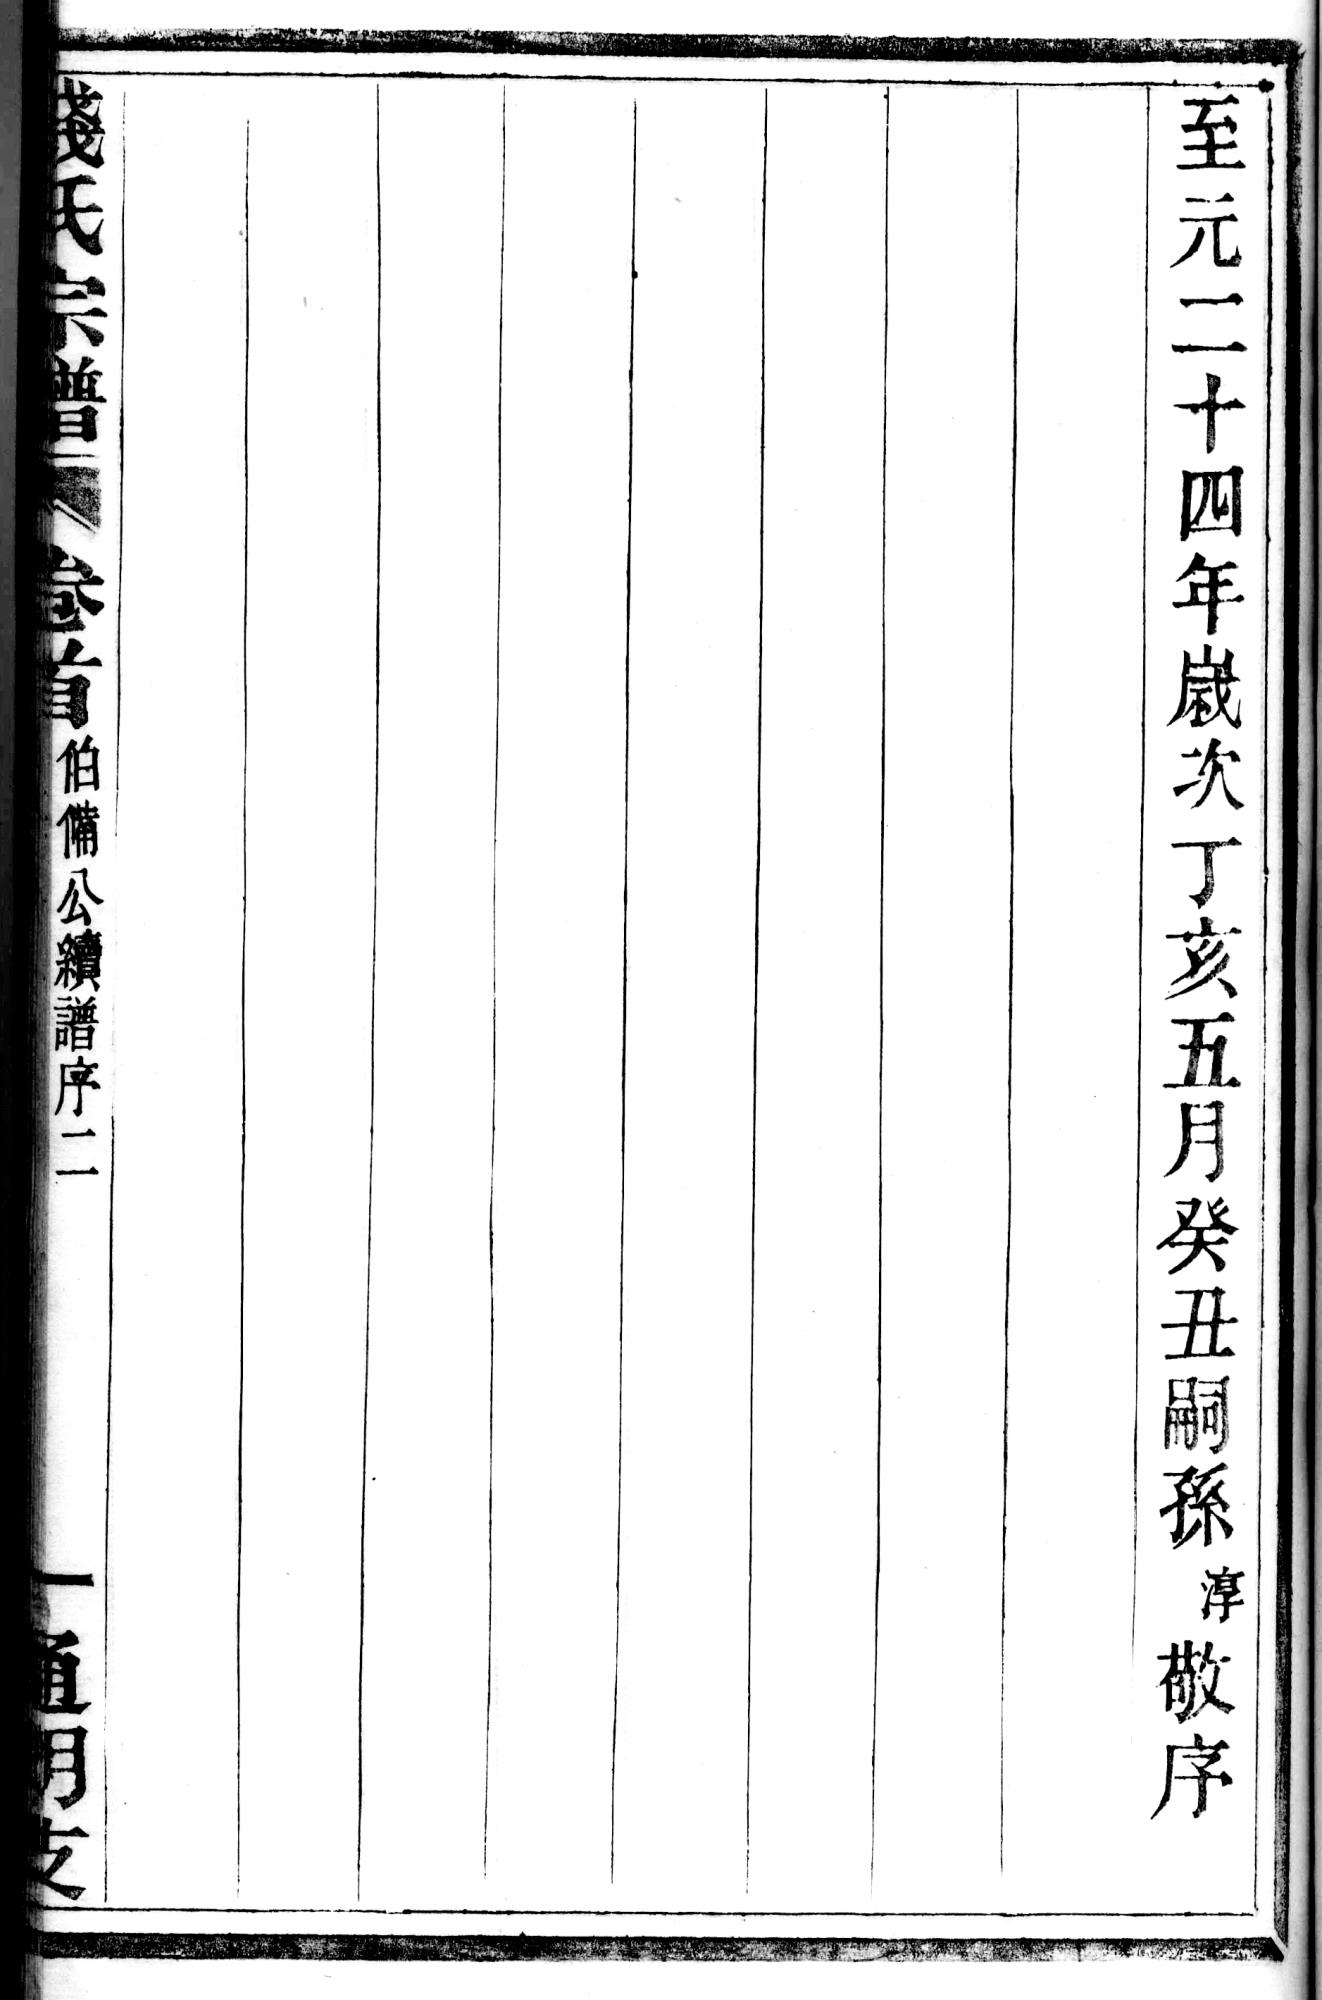 至元二十四年歲次丁亥五月癸丑嗣孫淳敬序
錢氏宗譜 卷首 伯備公續譜序二 一 通明支